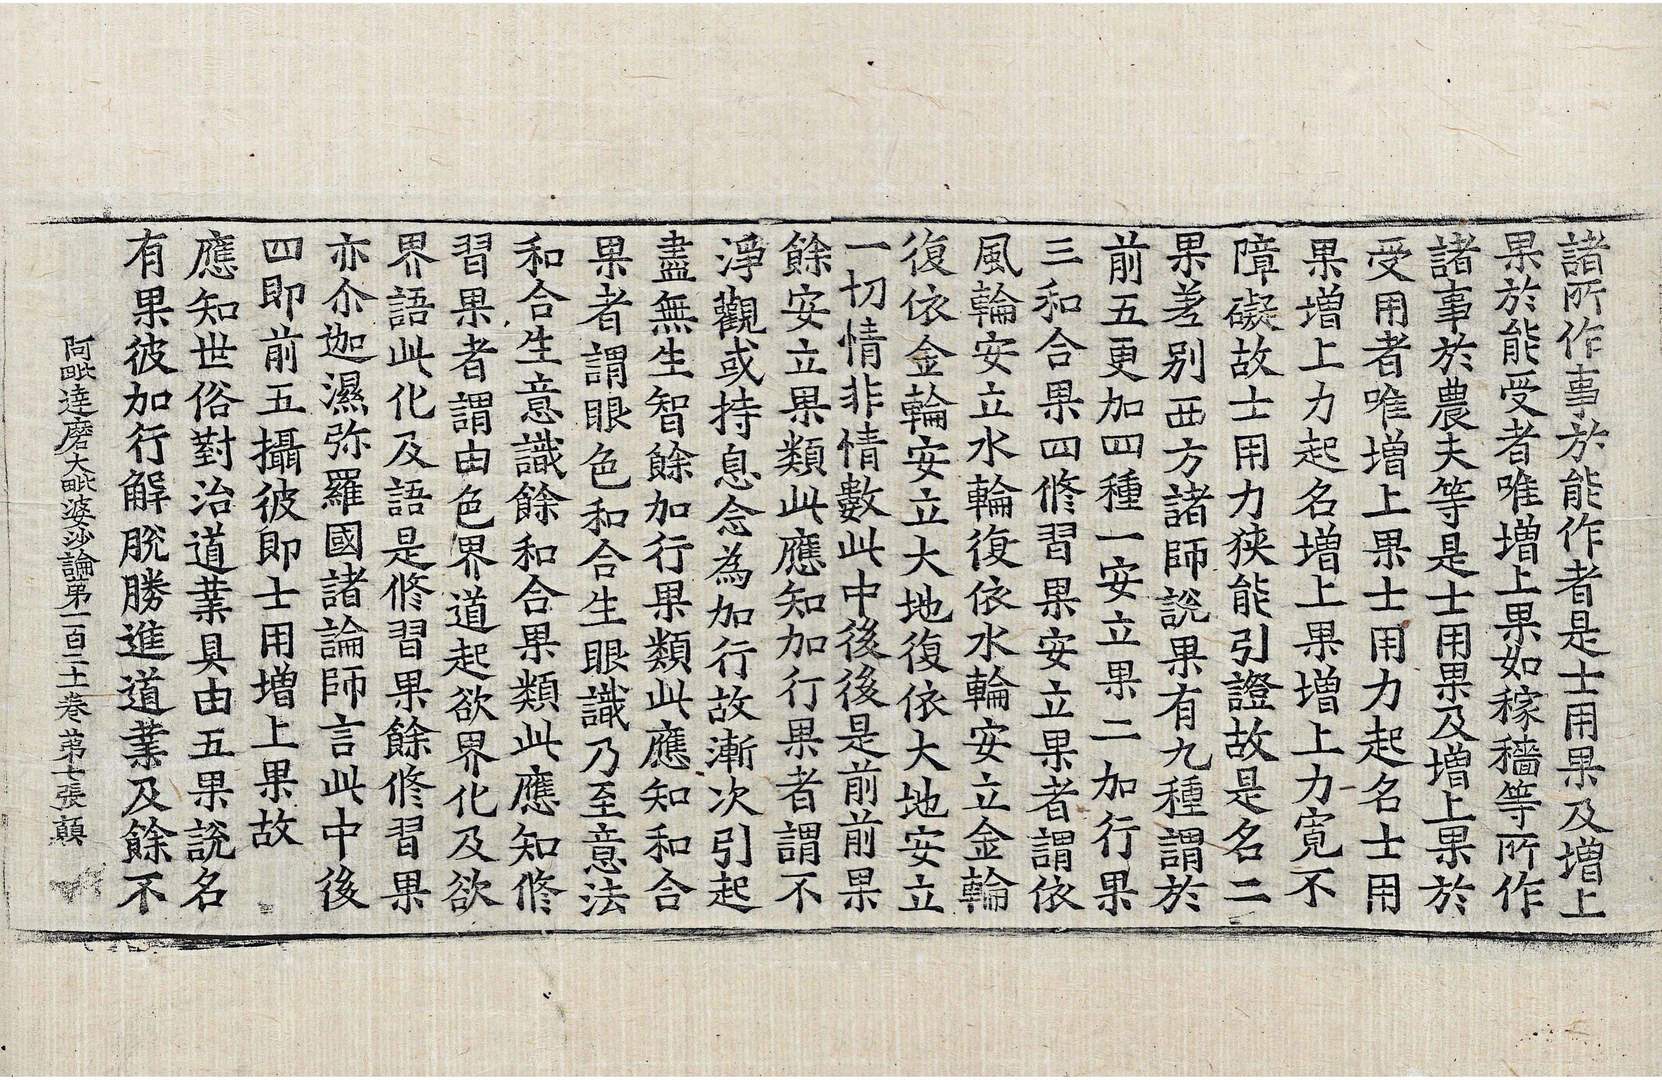 諸所作事於能作者是士用果及增上
果於能受者唯增上果如稼穡等所作
諸事於農夫等是士用果及增上果於
受用者唯增上果士用力起名士用
果增上力起名增上果增上力寬不
障礙故士用力狹能引證故是名二
果差別西方諸師說果有九種謂於
前五更加四種一安立果二加行果
三和合果四修習果安立果者謂依
風輪安立水輪復依水輪安立金輪
復依金輪安立大地復依大地安立
一切情非情數此中後後是前前果
餘安立果類此應知加行果者謂不
淨觀或持息念為加行故漸次引起
盡無生智餘加行果類此應知和合
果者謂眼色和合生眼識乃至意法
和合生意識餘和合果類此應知修
習果者謂由色界道起欲界化及欲
界語此化及語是修習果餘修習果
亦尒迦濕弥羅國諸論師言此中後
四即前五攝彼即士用增上果故
應知世俗對治道業具由五果說名
有果彼加行解脫勝進道業及餘不
阿毗達磨大毗婆沙論第一百二十一卷 第七張 顛